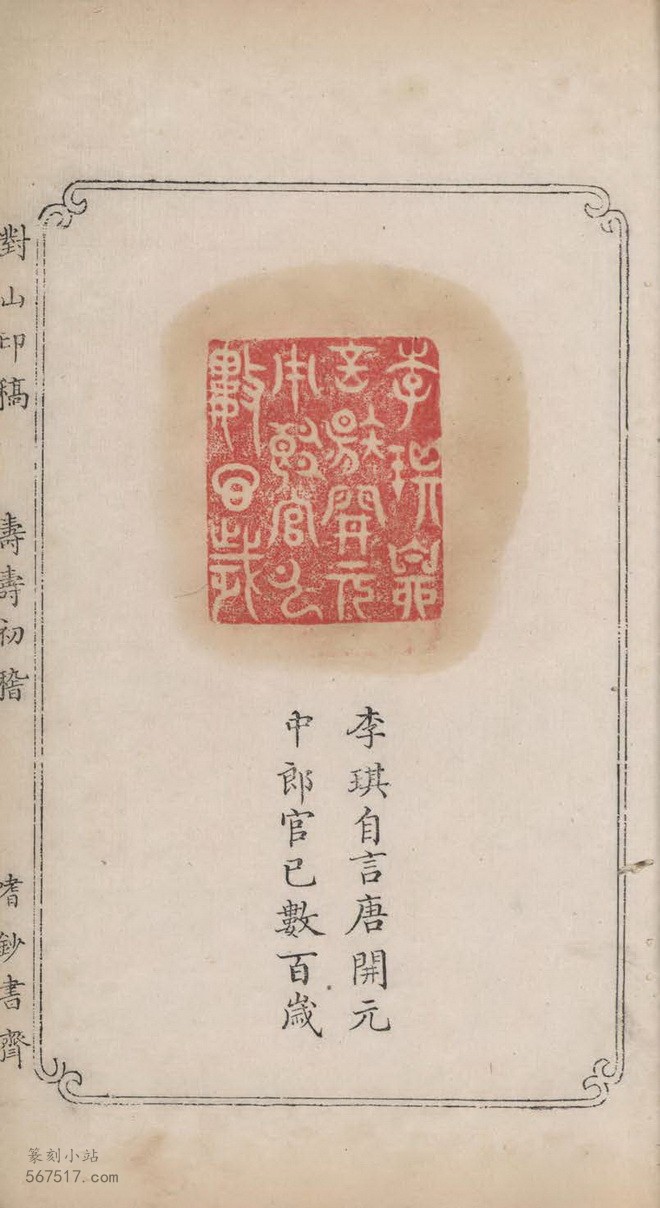 李琪自言唐開元
中郎官已數百歲
對山印稿
壽壽初稽
嗜鈔書齋
篆刻小站
567517.com